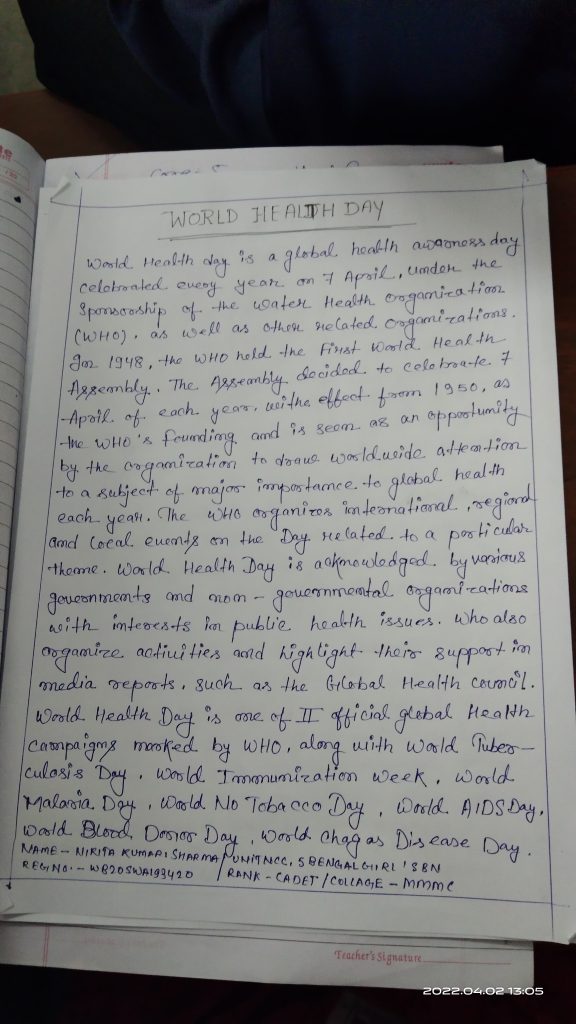 WORLD HEALTH DAY
World Health day is a global health awarness day
celebrated every year on 7 April, under the
Sponsorship of the water Health organization
(WHO), as well as other related organizations.
In 1948, the WHO held the First World Health
Assembly. The Assembly decided to celebrate 7
April of each year, withe effect from 1950, as
the WHO's founding and is seen as an opportunity
by the organization to draw worldwide attention
to a subject of major importance to global health
each year. The WHO organizes international, regional
and local events on the Day related to a particular
theme. World Health Day is acknowledged by various
governments and non-governmental organizations
with interests in public health issues. who also
organize activities and highlight their support in
media reports, such as the Global Health council.
World Health Day is one of II official global Health
campaigns marked by WHO, along with World Tuber-
culosis Day, World Immunization Week, World
Malaria Day, World No Tobacco Day, World AIDS Day,
World Blood Donor Day, World Chagas Disease Day.
NAME - NIKITA KUMARI SHARMA / UNIT NCC, 5 BENGAL GIRL'S BN
REG NO. - WB20SWA193420 / RANK - CADET / COLLAGE - MMMC
Teacher's Signature
2022.04.02 13:05